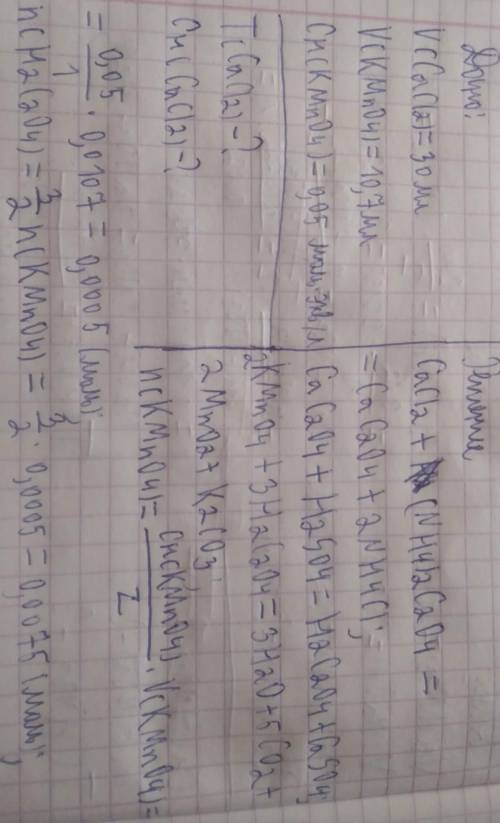 Дано:
V(CaCl2)=30мл
V(KMnO4)=10,7мл
Cн(KMnO4)=0,05 моль экв/л
T(CaCl2)-?
Cн(CaCl2)-?
Решение
CaCl2 + (NH4)2C2O4 =
= CaC2O4 + 2NH4Cl;
CaC2O4 + H2SO4 = H2C2O4 + CaSO4;
2KMnO4 + 3H2C2O4 = 3H2O + 5CO2 +
2MnO2 + K2CO3;
n(KMnO4) = Cн(KMnO4)/Z · V(KMnO4) =
= 0,05/1 · 0,0107 = 0,0005 (моль);
n(H2C2O4) = 3/2 n(KMnO4) = 3/2 · 0,0005 = 0,0075 (моль);